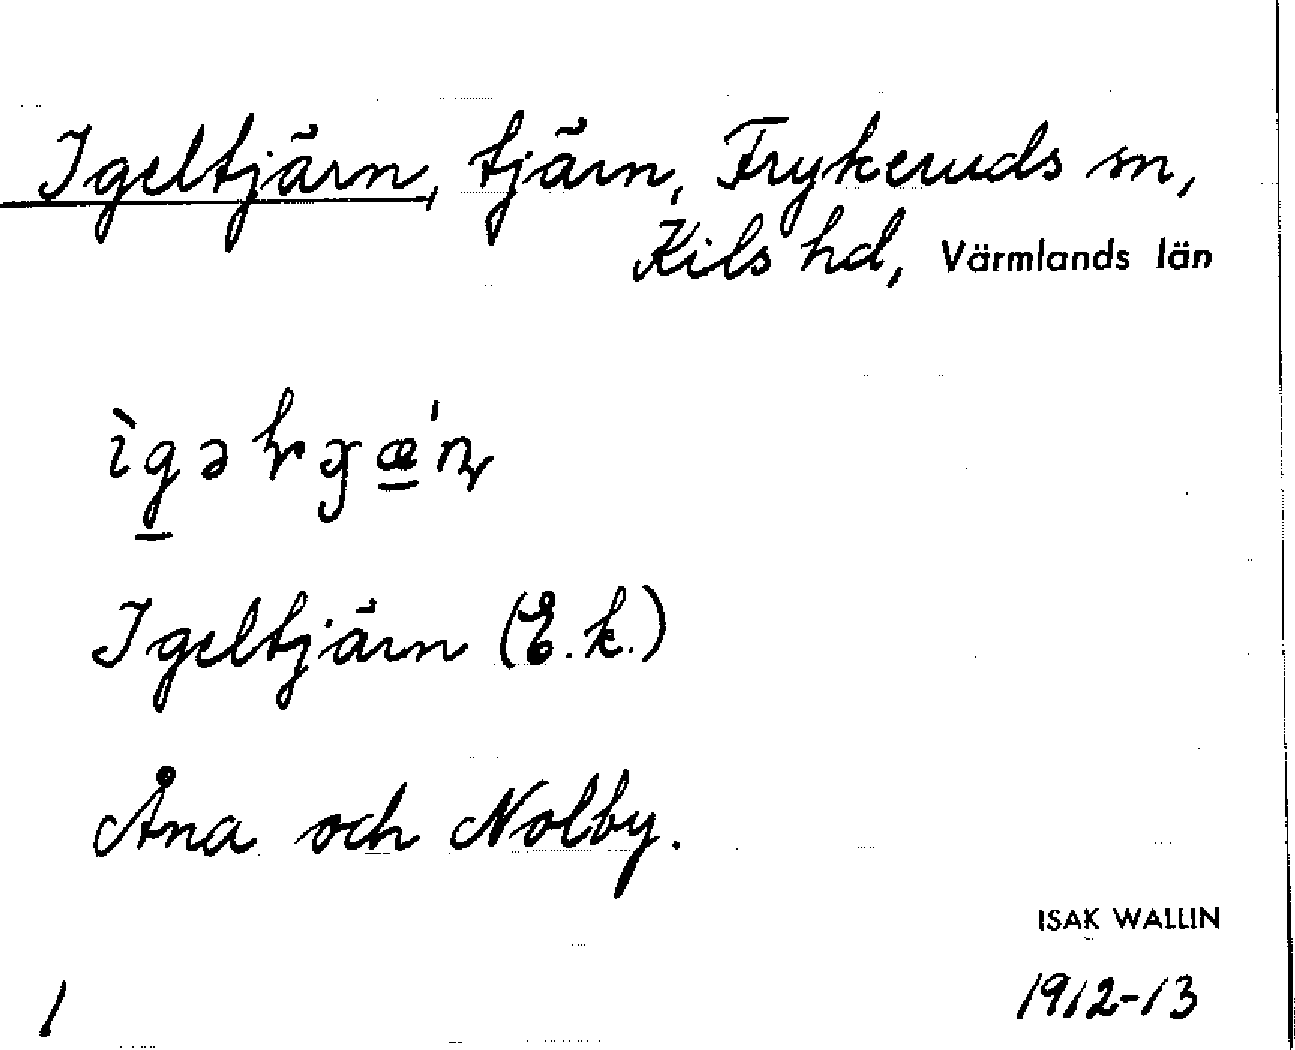 Igeltjärn, tjärn, Frykeruds sn,
Kils hd, Värmlands län
Igeltjärn (E.k.)
Åna och Nolby.
ISAK WALLIN
1912-13
1